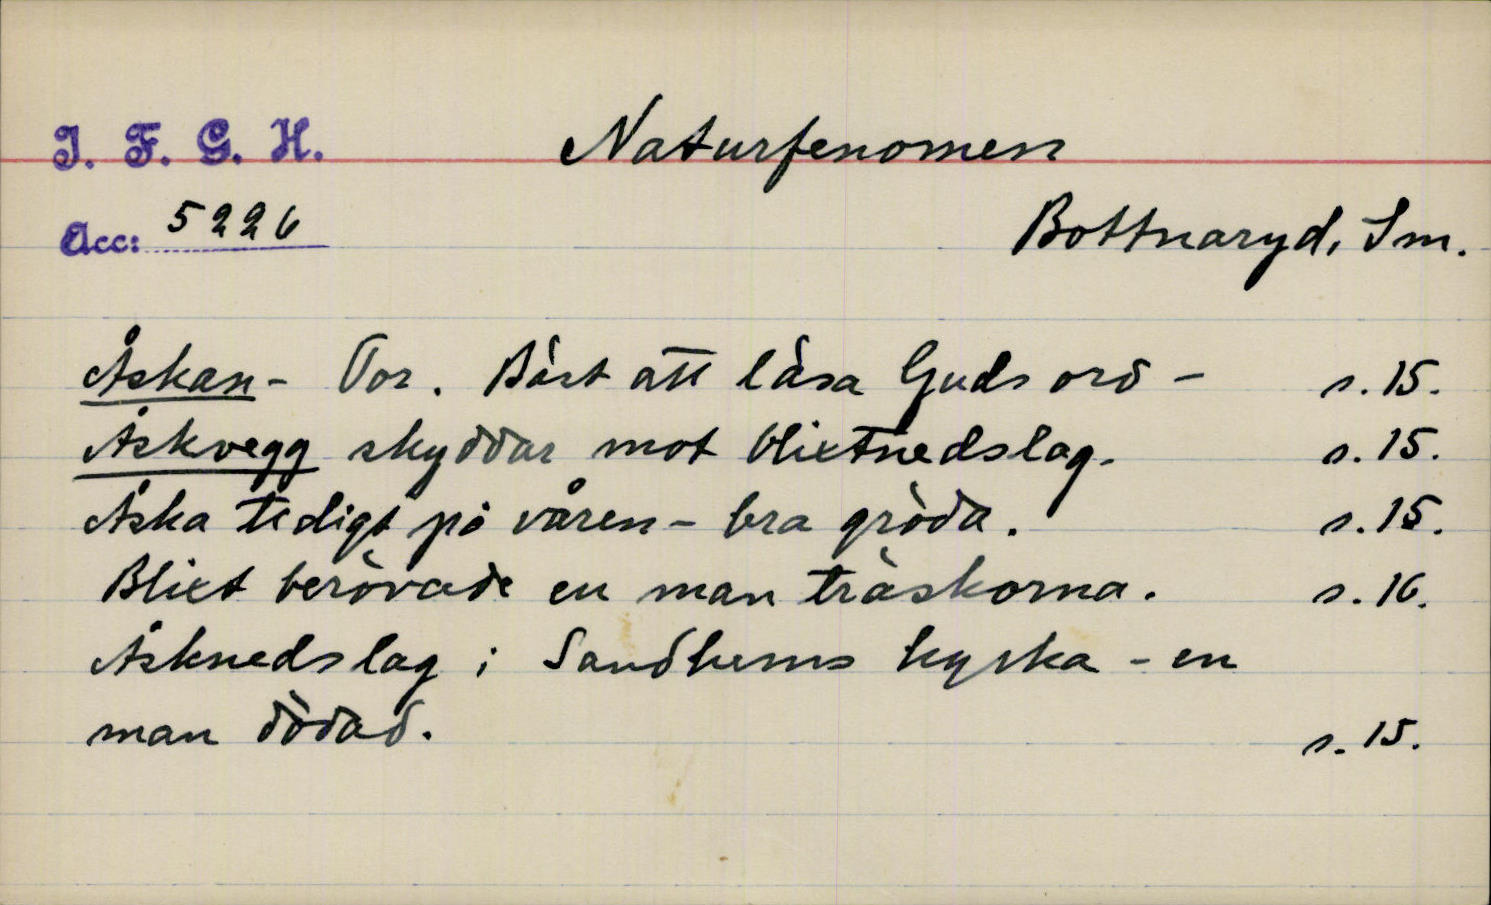 I. F. G. H.
Naturfenomen
Acc: 5226
Bottnaryd, Sm.
Åskan - Tor. Bäst att läsa Guds ord - s. 15.
Åskvegg skyddar mot blixtnedslag. s. 15.
Åska tidigt på våren - bra gröda. s. 15.
Blixt berövade en man träskorna. s. 16.
Åsknedslag i Sandhems kyrka - en
man dödad. s. 15.